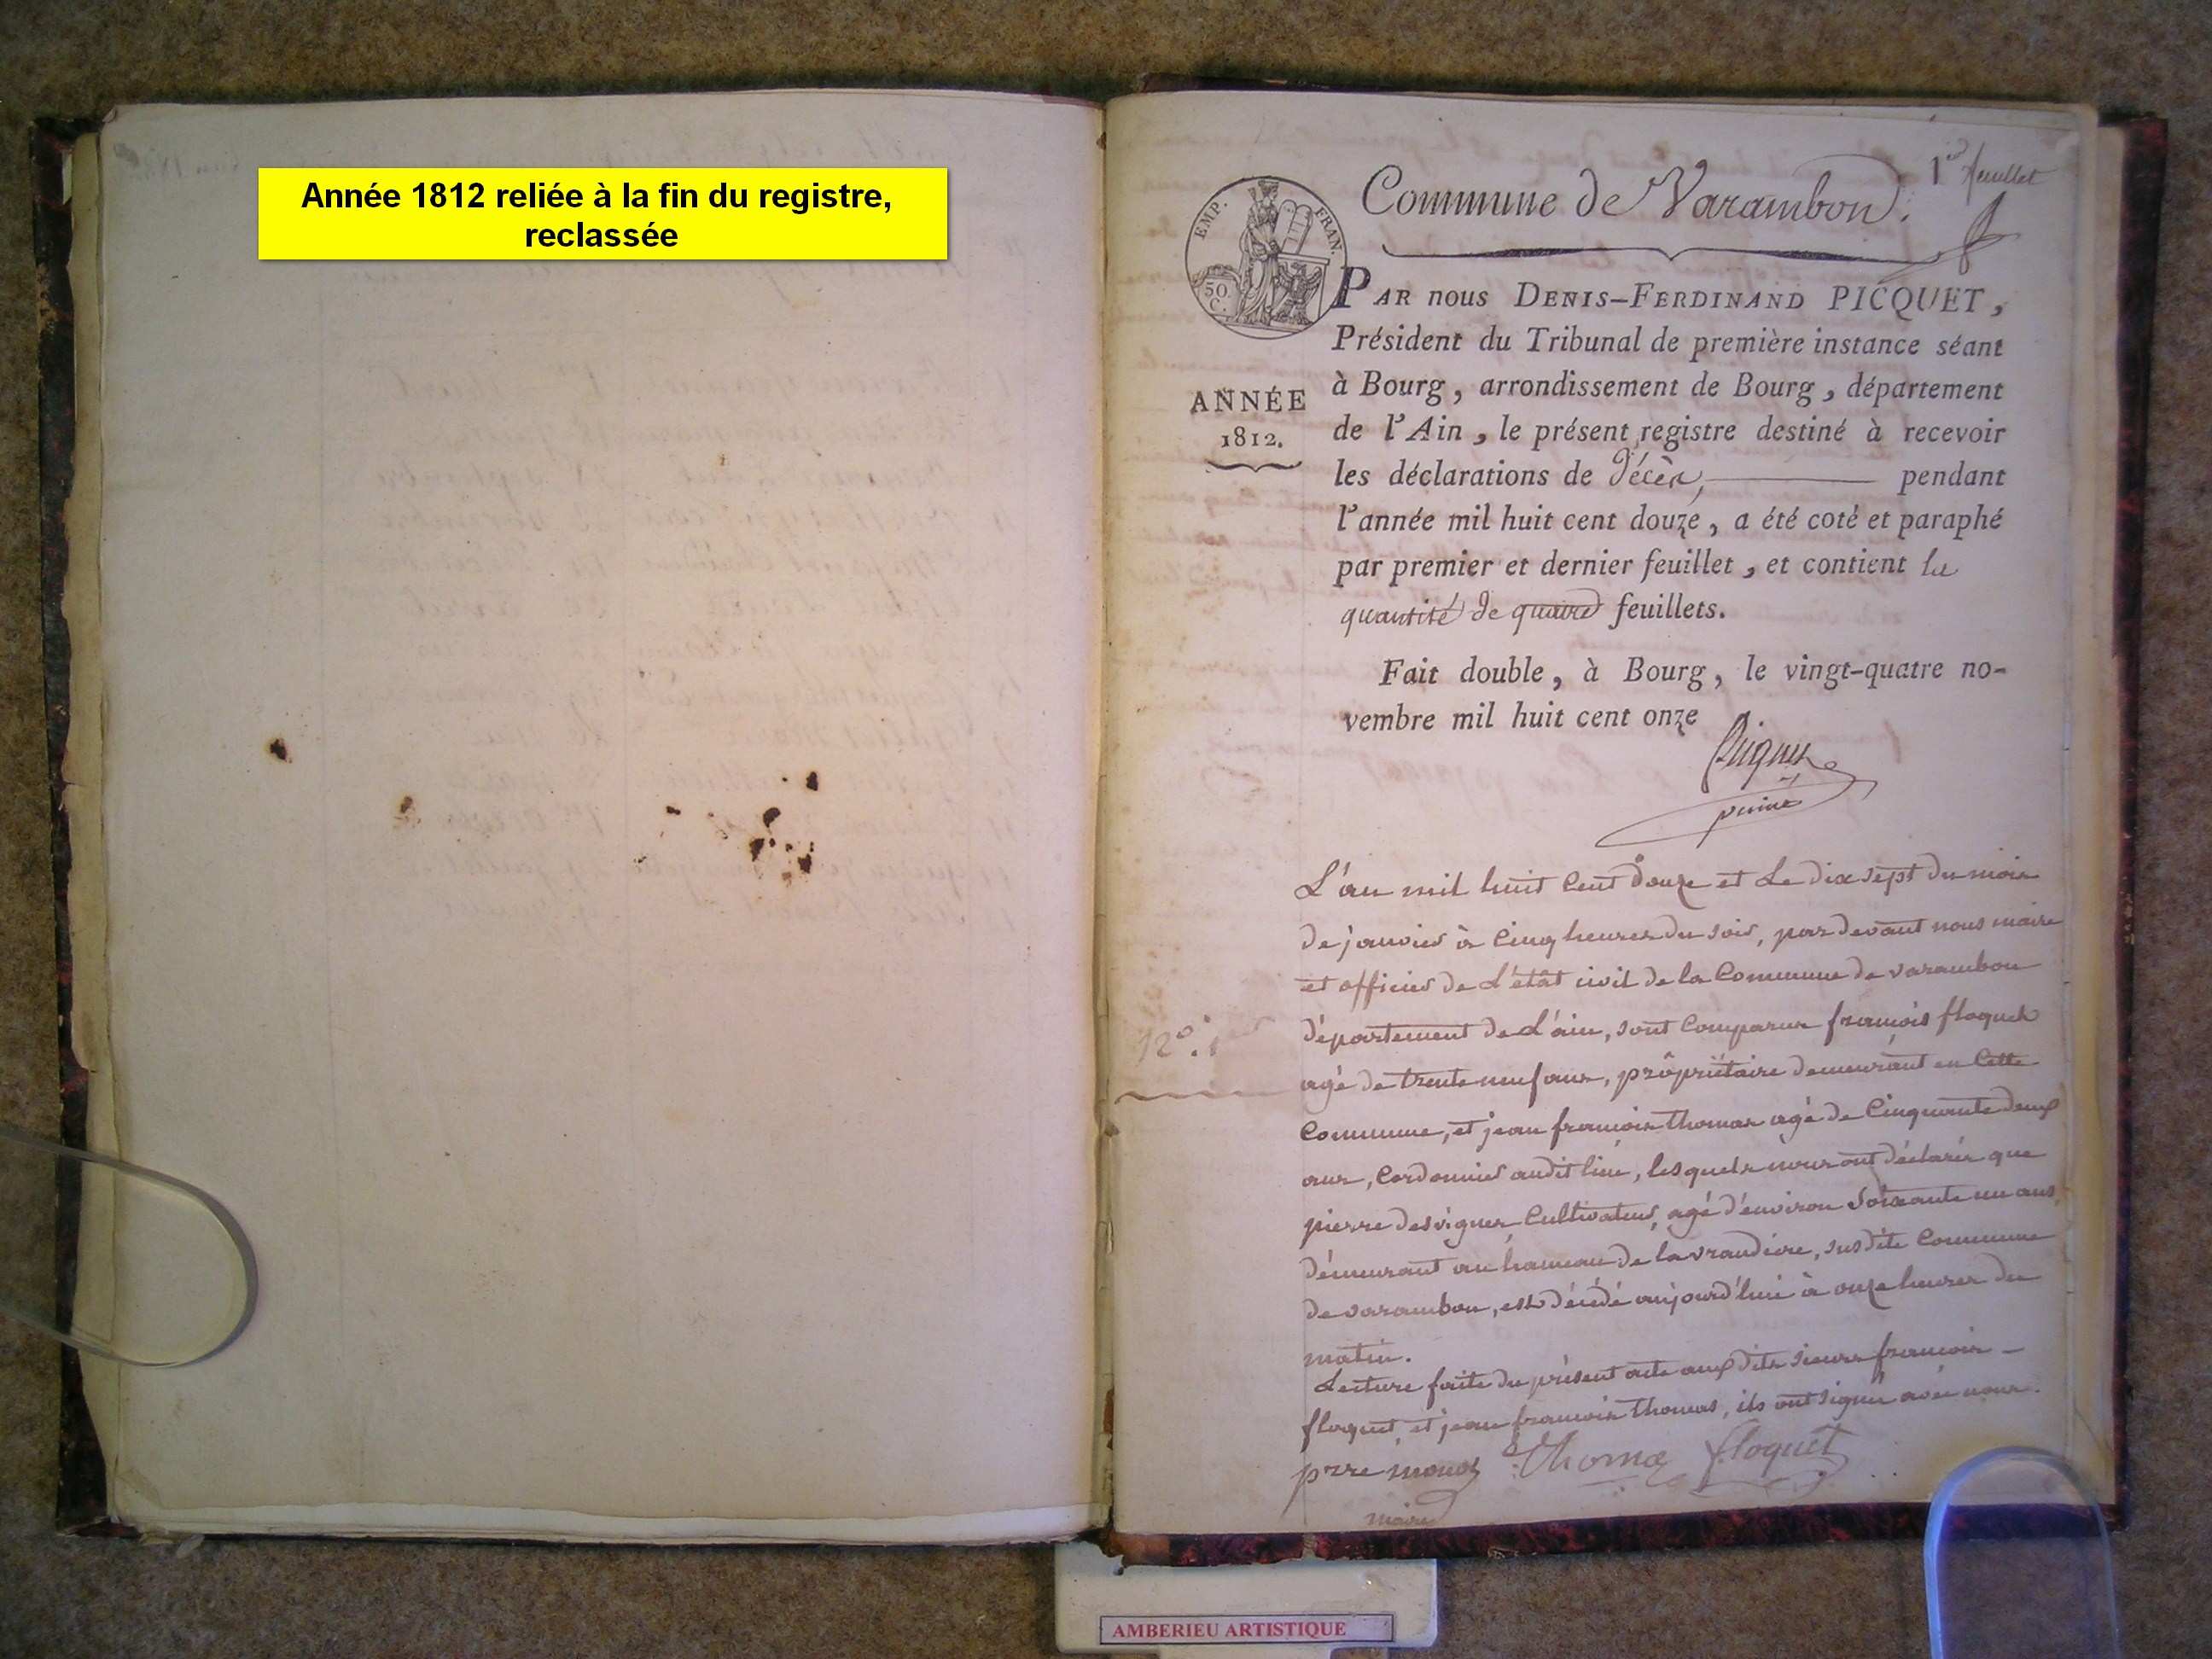 Année 1812 reliée à la fin du registre,
reclassée
1er feuillet
Commune de Varambon.
EMP. FRAN.
50 C.
ANNÉE
1812.
PAR nous DENIS-FERDINAND PICQUET,
Président du Tribunal de première instance séant
à Bourg, arrondissement de Bourg, département
de l'Ain, le présent registre destiné à recevoir
les déclarations de décès, pendant
l'année mil huit cent douze, a été coté et paraphé
par premier et dernier feuillet, et contient la
quantité de quatre feuillets.
Fait double, à Bourg, le vingt-quatre no-
vembre mil huit cent onze
Picquet
L'an mil huit Cent douze et Le dix sept du mois
de janvier à Cinq heures du soir, par devant nous maire
et officier de L'étât civil de la Commune de varambon
département de L'ain, sont Comparus françois floquet
agé de trente neuf ans, propriétaire demeurant en Cette
Commune, et jean françois thomas agé de Cinquante deux
ans, Cordonnier audit lieu, lesquels nous ont déclarés que
pierre desvignes Cultivateur, agé d'environ Soixante un ans,
démeurant au hameau de la vraudiere, susdite Commune
de varambon, est décédé aujourd'hui à onze heures du
matin.
Lecture faite du présent acte aux dits sieurs françois
floquet, et jean françois thomas, ils ont signé avec nous.
12º. 1er
prre monot Thomas floquet
maire
AMBERIEU ARTISTIQUE